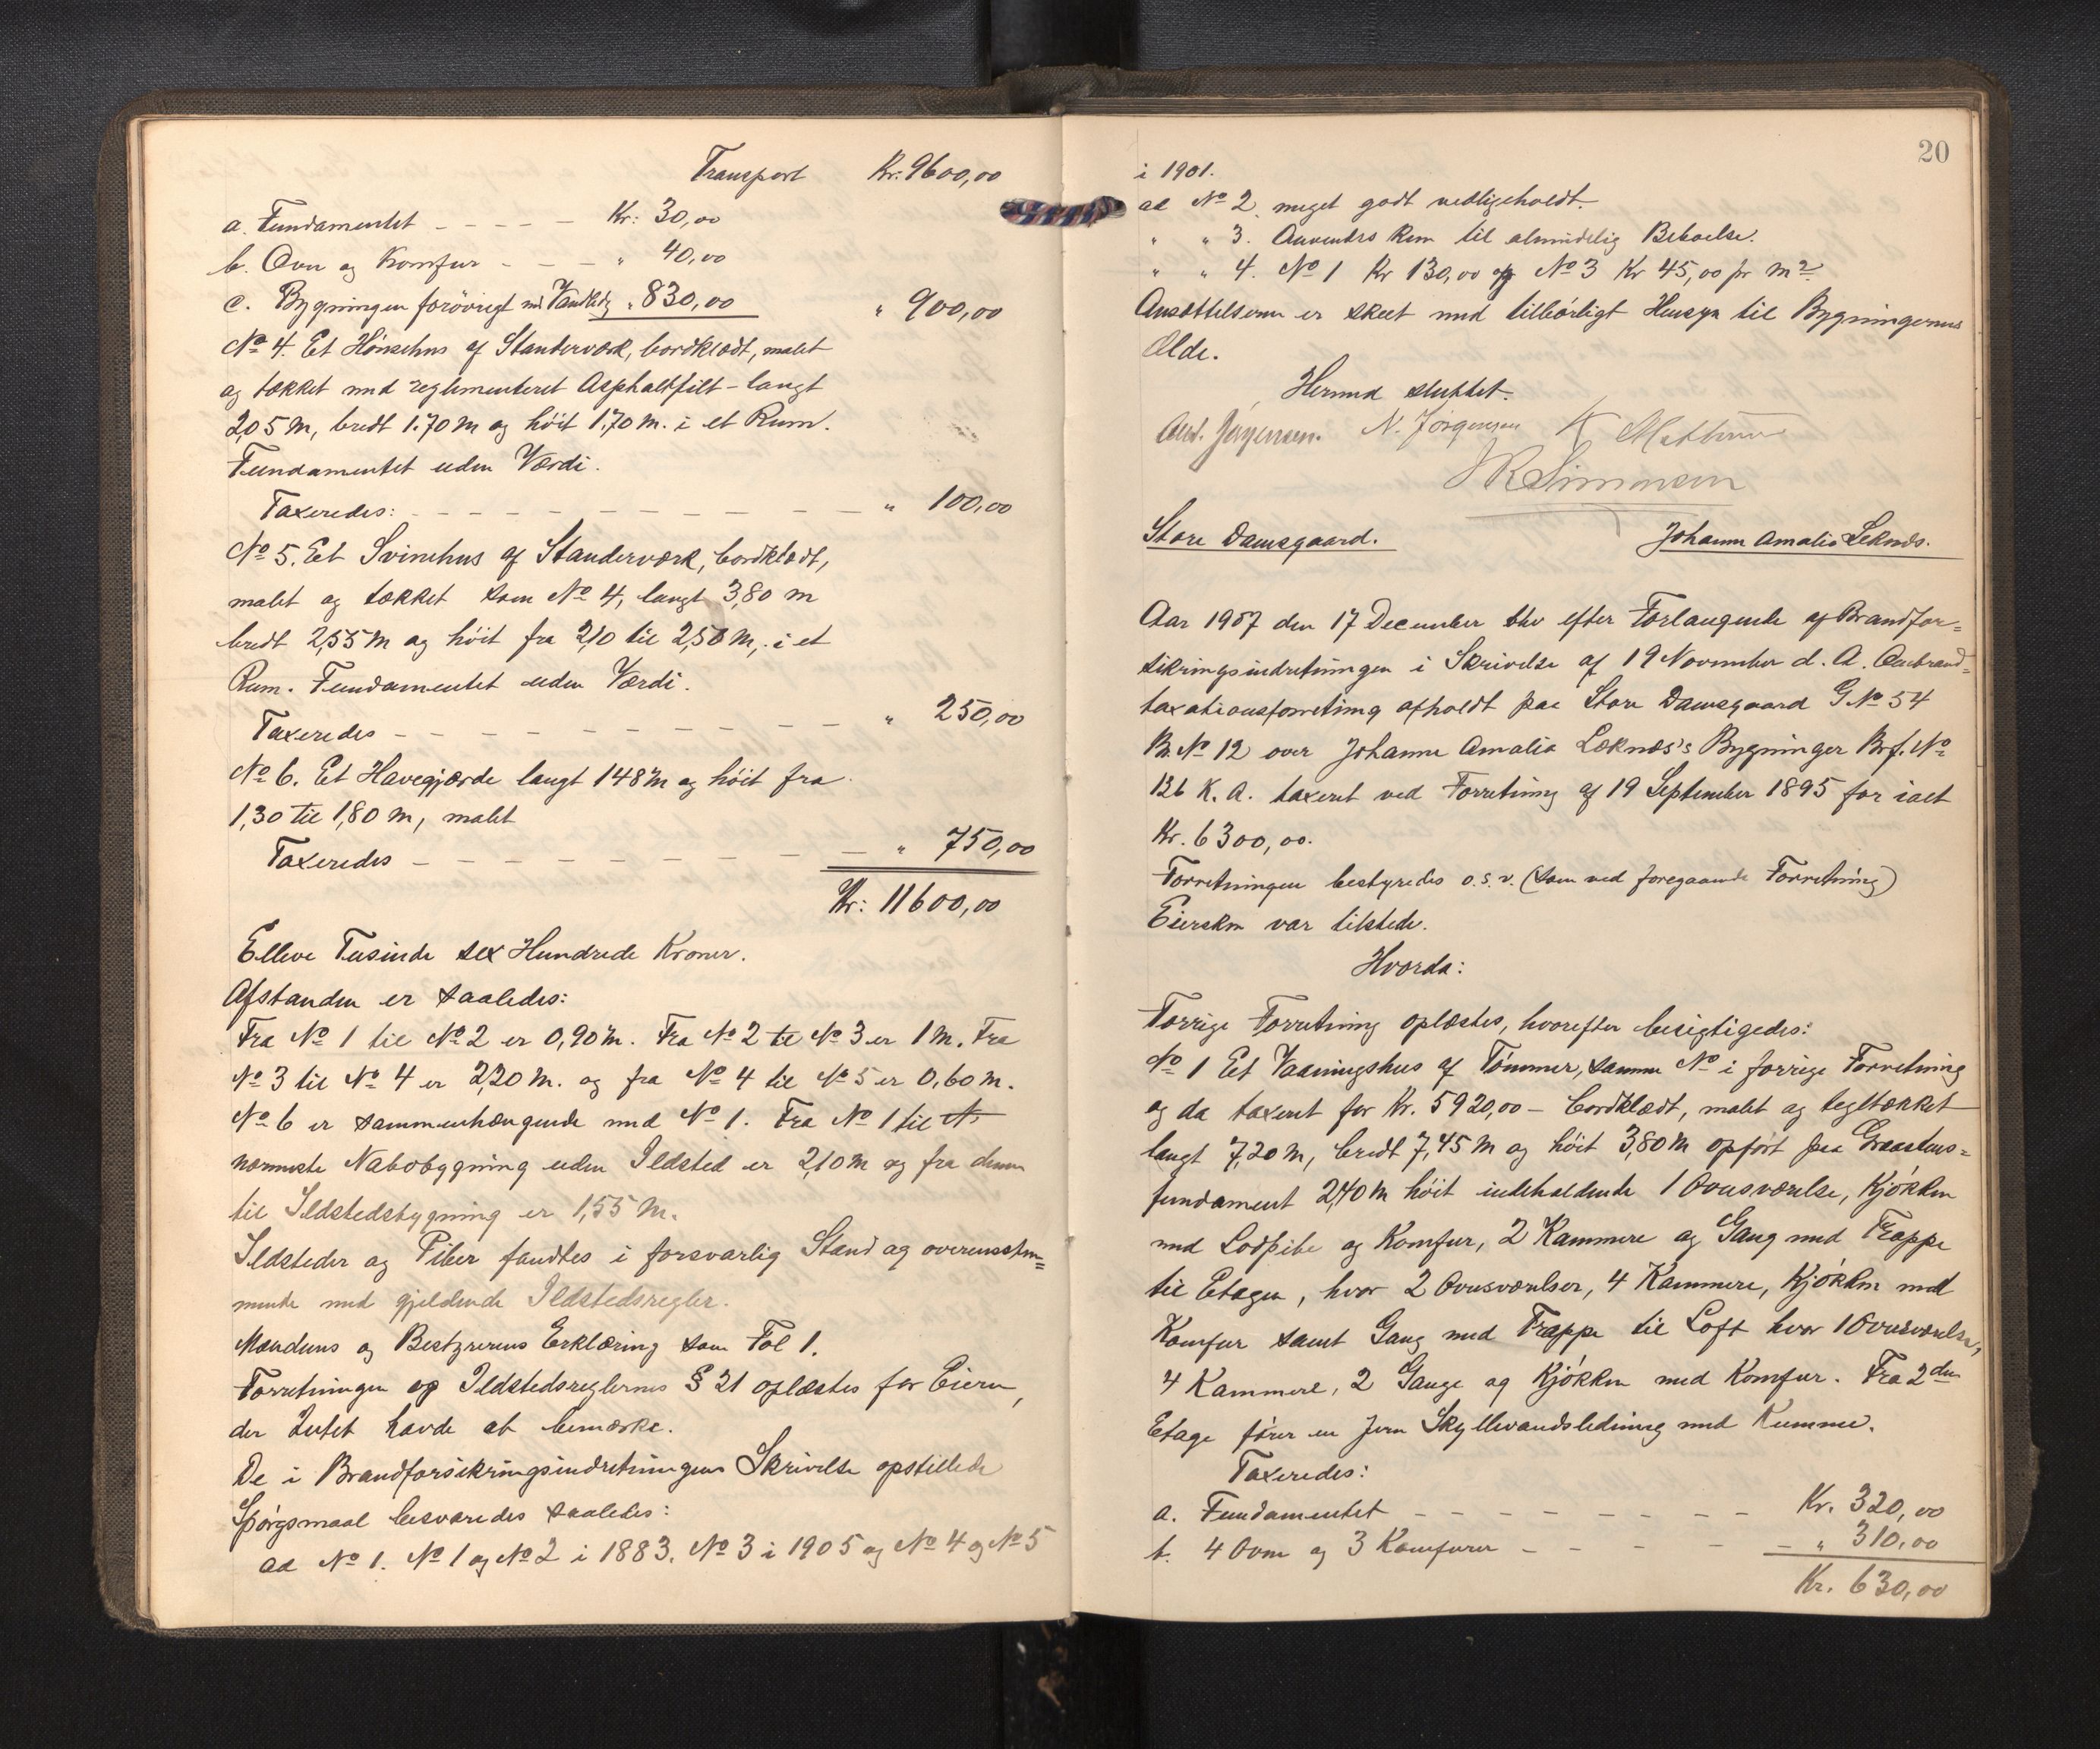 Transport Kr. 9600,00
a. Fundamentet - - - - Kr: 30,00
b. Ovn og Komfur - - - " 40,00
c. Bygningen forövrigt md Vandledg " 830,00 " 900,00
No 4. Et Hönsehus af Standerværk, bordklædt, malet
og tækket med reglementeret Asphaltfilt - langt
2,05 M, bredt 1.70 M og höit 1,70 M. i et Rum.
Fundamentet uden Værdi.
Taxeredes: - - - - - - - - - " 100,00
No 5. Et Svinehus af Standerværk, bordklædt,
malet og tækket som No 4, langt 3,80 M
bredt 2,55 M og höit fra 2,10 til 2,50 M, i et
Rum. Fundamentet uden Værdi.
Taxeredes - - - - - - - - " 250,00
No 6. Et Havegjærde langt 148 M og höit fra
1,30 til 1,80 M, malet
Taxeredes - - - - - - - - - " 750,00
Kr: 11600,00
Elleve Tusinde sex Hundrede Kroner.
Afstanden er saaledes:
Fra No 1 til No 2 er 0,90 M. Fra No 2 til No 3 er 1 M. Fra
No 3 til No 4 er 2,20 M. og fra No 4 til No 5 er 0,60 M.
No 6 er sammenhængende med No 1. Fra No 1 til N
nærmeste Nabobygning uden Ildsted er 2,10 M og fra denne
til Ildstedsbygning er 1,55 M.
Ildsteder og Piber fandtes i forsvarlig Stand og overensstem=
mende med gjeldende Ildstedsregler.
Mændens og Bestyrerens Erklæring som Fol 1.
Forretningen og Ildstedsreglernes § 21 oplæstes for Eieren,
der Intet havde at bemærke.
De i Brandforsikringsindretningens Skrivelse opstillede
Spörgsmaal besvaredes saaledes:
ad No 1. No 1 og No 2 i 1883. No 3 i 1905 og No 4 og No 5
20
i 1901.
ad No 2. meget godt vedligeholdt.
" " 3. Anvendes kun til almindelig Beboelse.
" " 4. No 1 Kr 130,00 og No 3 Kr 45,00 pr M2
Ansættelserne er skeet med tilbörligt Hensyn til Bygningernes
Ælde.
Hermed sluttet.
Ant. Jörgensen. N. Jörgensen K
Simonsen
Store Damsgaard. Johanne Amalie Leknæs.
Aar 1907 den 17 December blev efter Forlangende af Brandfor=
sikringsindretningen i Skrivelse af 19 November d. A. Ombrand=
taxationsforretning afholdt paa Store Damsgaard G No 54
B. No 12 over Johanne Amalie Leknæs's Bygninger Brf. No
126 K. A. taxeret ved Forretning af 19 September 1895 for ialt
Kr. 6300,00.
Forretningen bestyredes o.s.v. (som ved foregaaende Forretning)
Eiersken var tilstede.
Hvorda:
Forrige Forretning oplæstes, hvorefter besigtigedes:
No 1 Et Vaaningshus af Tömmer, samme No i forrige Forretning
og da taxeret for Kr. 5920,00 - bordklædt, malet og tegltækket
langt 7,20 M, bredt 7,45 M og höit 3,80 M opfört paa Graastens=
fundament 2,40 M höit indeholdende 1 Ovnsværelse, Kjökken
med Lodpibe og Komfur, 2 Kammere og Gang med Trappe
til Etagen, hvor 2 Ovnsværelser, 4 Kammere, Kjökken med
Komfur samt Gang med Trappe til Loft hvor 1 Ovnsværelse,
4 Kammere, 2 Gange og Kjökken med Komfur. Fra 2den
Etage förer en Jern Skyllevandsledning med Kumme.
Taxeredes:
a. Fundamentet - - - - - - - - Kr. 320,00
b. 4 Ovne og 3 Komfurer - - - - - - " 310,00
Kr. 630,00